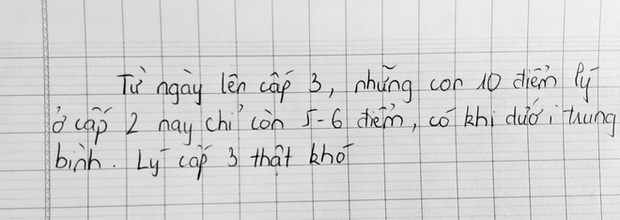 Từ ngày lên cấp 3, những con 10 điểm lý
ở cấp 2 nay chỉ còn 5-6 điểm, có khi dưới trung
bình. Lý cấp 3 thật khó